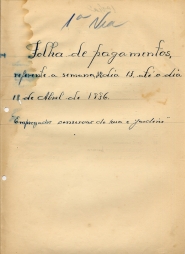 1ª Via
Folha de pagamentos,
referente a semana, dia 13, até o dia
18 de Abril de 1936.
Empregados serviços de rua e jardins